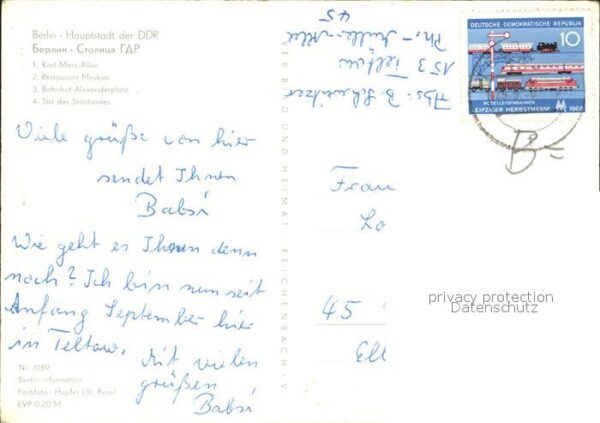 Berlin - Hauptstadt der DDR
Берлин - Столица ГДР
1. Karl-Marx-Allee
2. Restaurant Moskau
3. Bahnhof Alexanderplatz
4. Sitz des Staatsrates
Viele grüße von hier
sendet Ihnen
Babsi
Wie geht es Ihnen denn
noch? Ich bin nun seit
Anfang September hier
in Teltow. Mit vielen
grüßen
Babsi
Nr. 1089
Berlin-Information
Farbfoto: Hupfer (3), Reuel
EVP 0,20 M
BILD UND HEIMAT REICHENBACH
Abs: B.
153 Teltow
45
DEUTSCHE DEMOKRATISCHE REPUBLIK
10
MODELLEISENBAHNEN
LEIPZIGER HERBSTMESSE 1968
Frau
Lo
45
Ell
privacy protection
Datenschutz